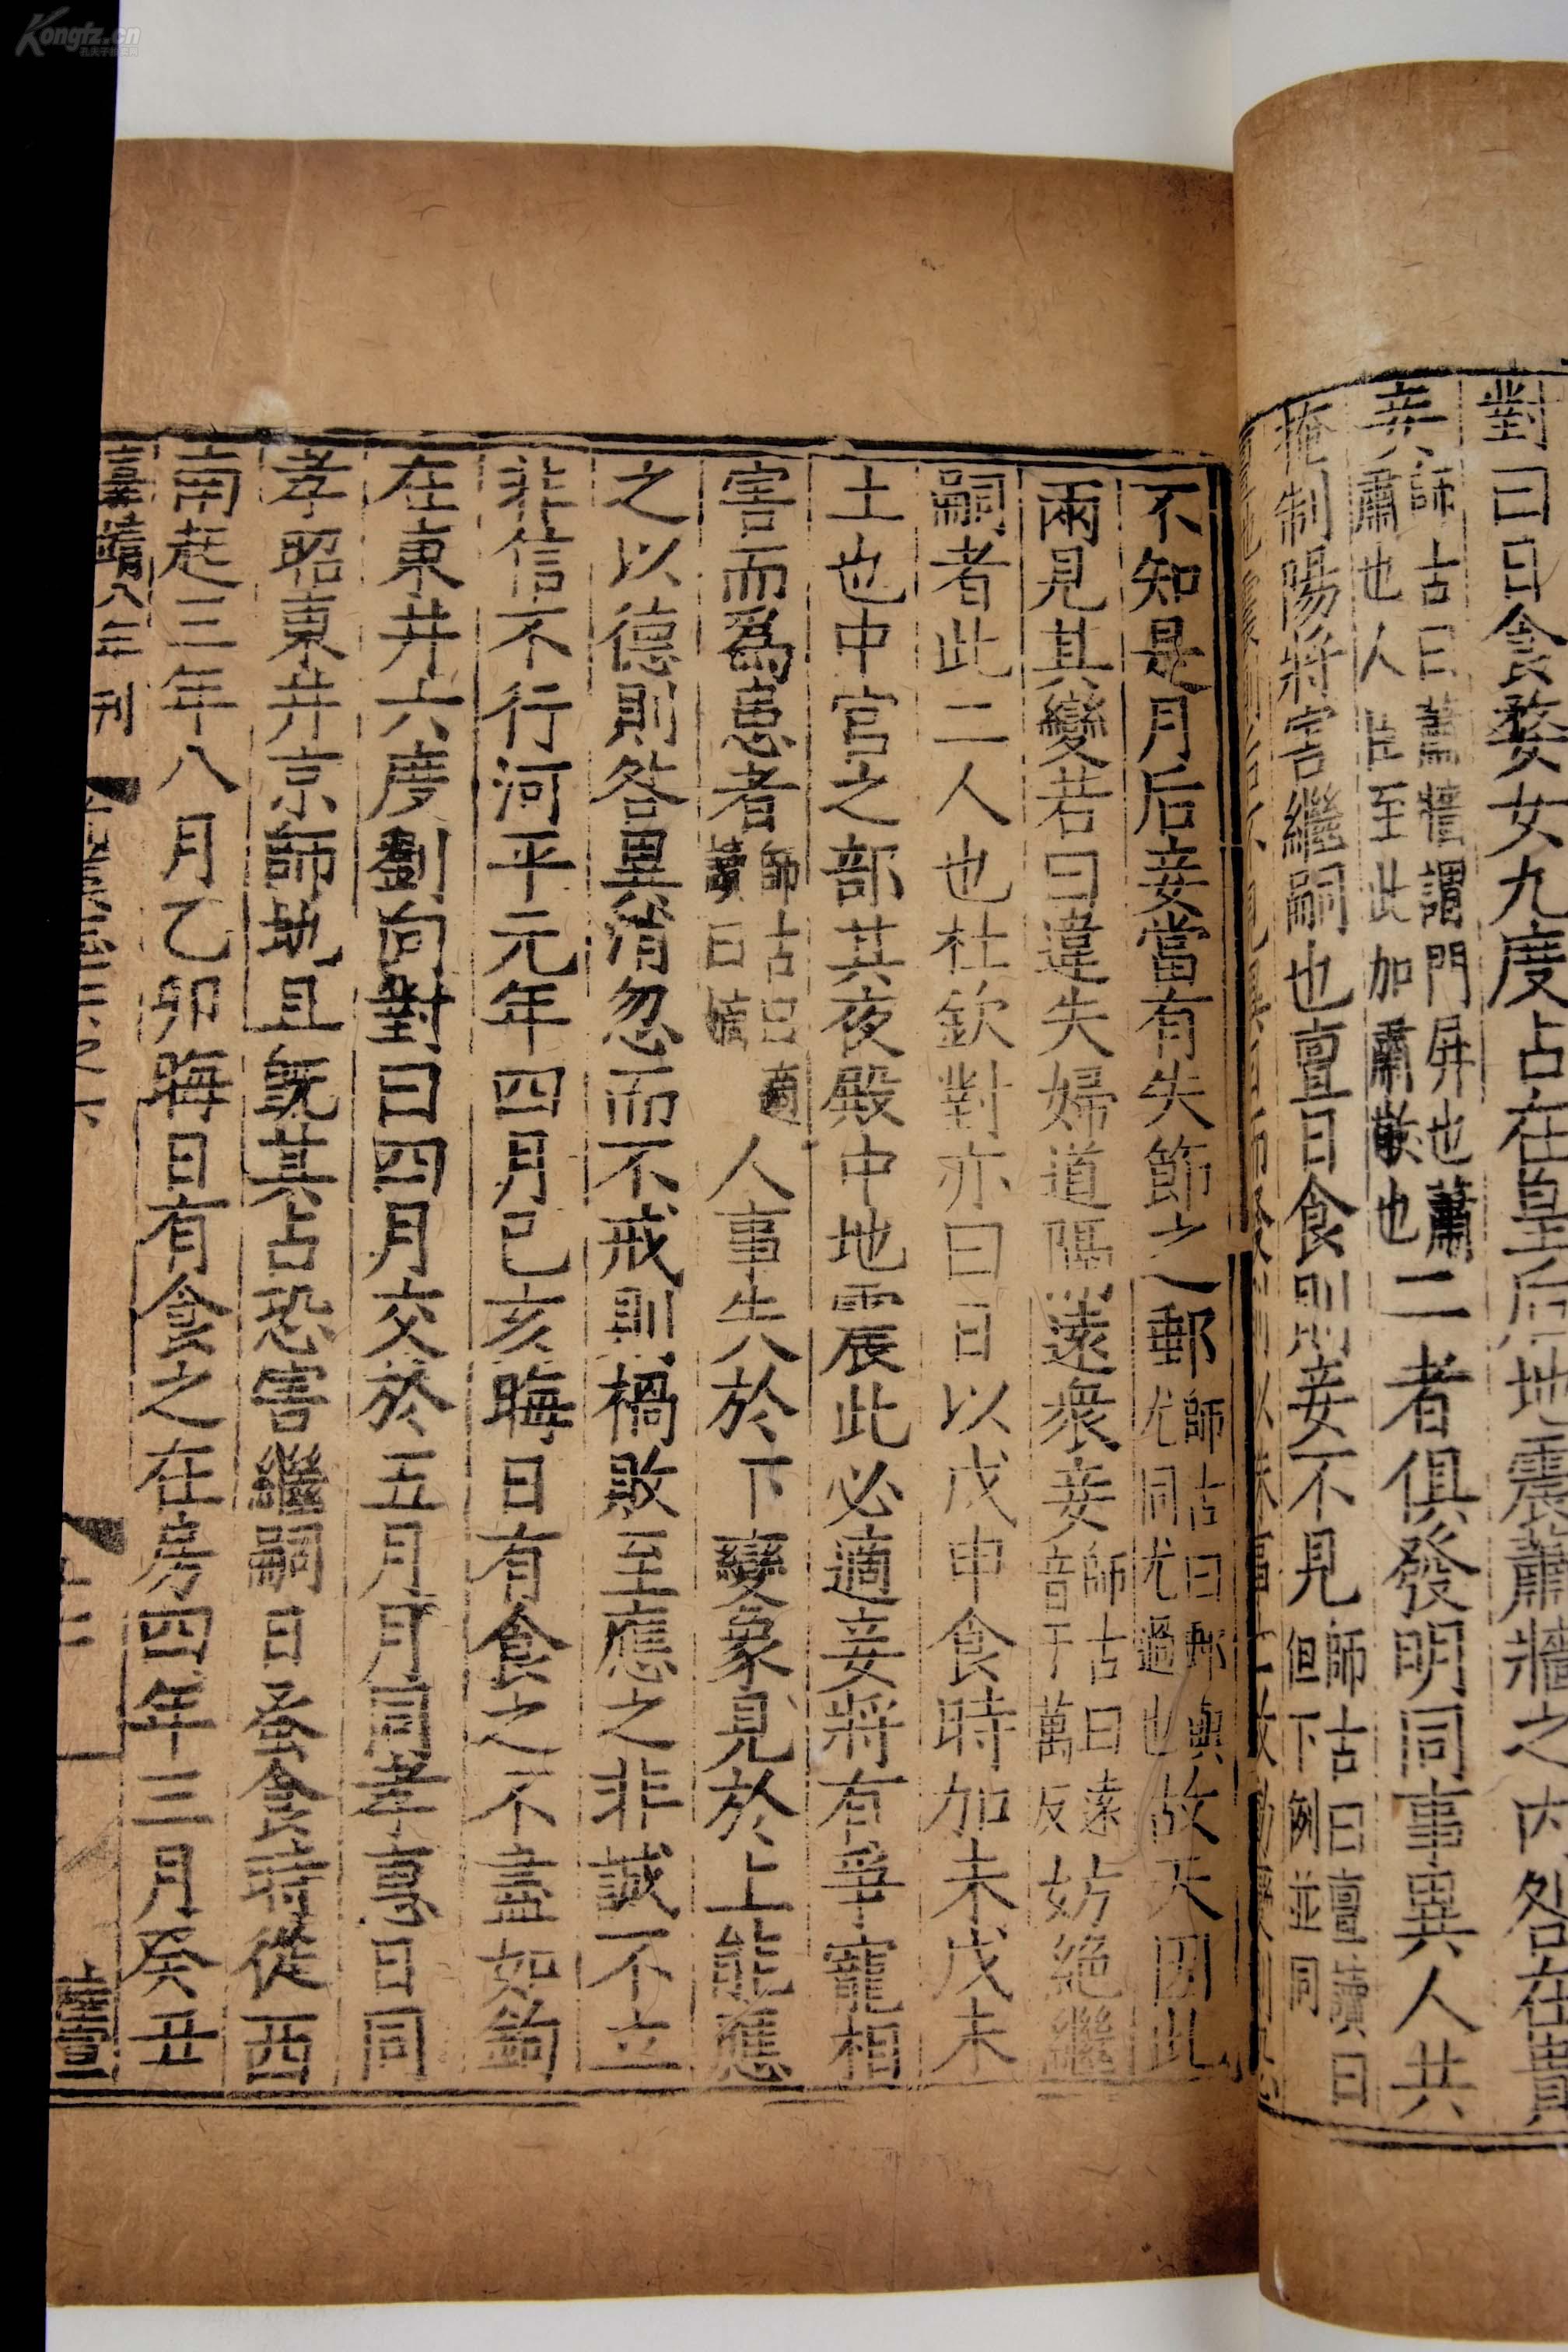 對曰日食婺女九度占在皇后地震蕭牆之內咎在貴
妾師古曰蕭牆謂門屏也蕭肅也人臣至此加肅敬也二者俱發明同事異人共
掩制陽將害繼嗣也亶日食則妾不見師古曰亶讀曰但下例並同
不知是月后妾當有失節之郵師古曰郵與尤同尤過也故天因此
兩見其變若曰違失婦道隔遠衆妾師古曰遠音于萬反妨絶繼
嗣者此二人也杜欽對亦曰日以戊申食時加未戊未
土也中宫之部其夜殿中地震此必適妾將有爭寵相
害而爲患者師古曰適讀曰嫡人事失於下變象見於上能應
之以德則咎異消忽而不戒則禍敗至應之非誠不立
非信不行河平元年四月己亥晦日有食之不盡如鉤
在東井六度劉向對曰四月交於五月月同孝惠日同
孝昭東井京師地且旣其占恐害繼嗣日蚤食時從西
南起三年八月乙卯晦日有食之在房四年三月癸丑
嘉靖八年刊
Kongfz.cn